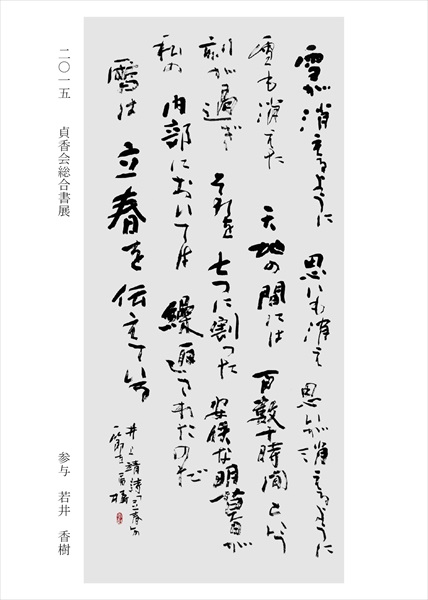 雪が消えるように 思いも消え 思いが消えるように
雪も消えた 天地の間には 百数十時間という
刻が過ぎ それを 七つに割った な明暗が
私の 内部においては 繰返されたのだ
は 立春を 伝えている
井上靖 詩 立春
一節を 香樹
二〇一五 貞香会総合書展 参与 若井 香樹